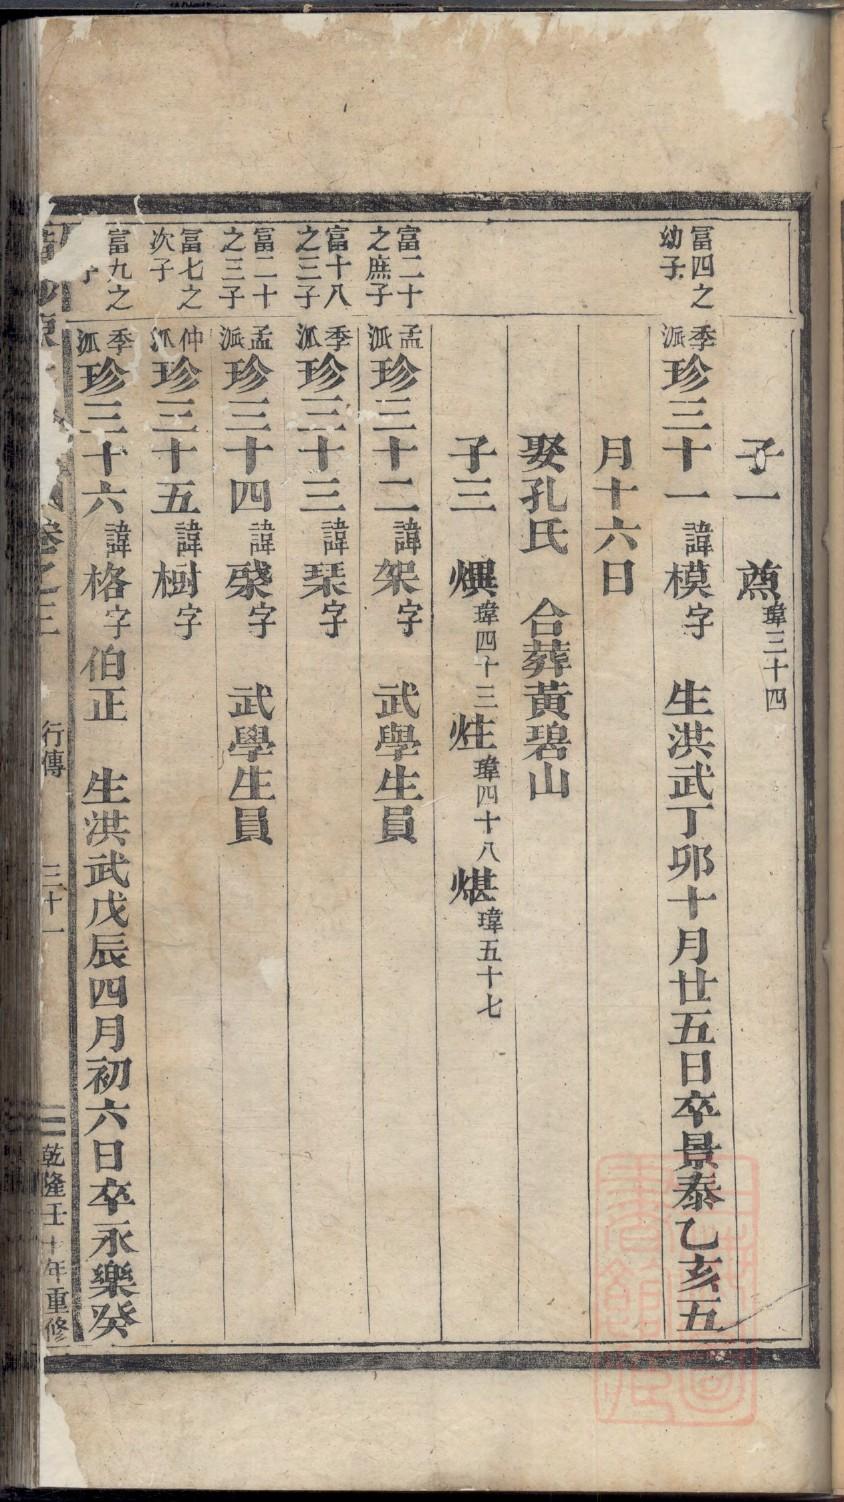 子一　𤋱瑋三十四
冨四之幼子　季派珍三十一諱模字　生洪武丁卯十月廿五日卒景泰乙亥五
月十六日
娶孔氏　合葬黃碧山
子三　熼瑋四十三　炷瑋四十八　煁瑋五十七
冨二十之庶子　孟派珍三十二諱架字　武學生員
冨十八之三子　季派珍三十三諱琹字
冨二十之三子　孟派珍三十四諱字　武學生員
冨七之次子　仲派珍三十五諱樹字
冨九之子　季派珍三十六諱格字伯正　生洪武戊辰四月初六日卒永樂癸
卷之三　行傳　三十一　乾隆壬十年重修